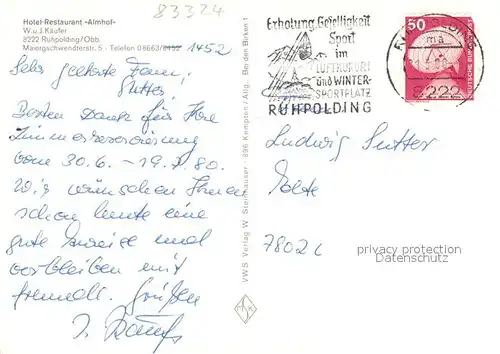 83324
Hotel-Restaurant "Almhof"
W. u. J. Käufer
8222 Ruhpolding/Obb.
Maiergschwendterstr. 5 - Telefon 08663/9452 1452
Sehr geehrte Fam.
Sutter!
Besten Dank für Ihre
Zimmerreservierung
vom 30.6. - 19.7.80.
Wir wünschen Ihnen
schon heute eine
gute Anreise und
verbleiben mit
freundl. Grüßen
VWS Verlag W. Steinhauser · 896 Kempten / Allg. Bei den Birken 1
Erholung, Geselligkeit
Sport
im
LUFTKURORT
und WINTER-
SPORTPLATZ
RUHPOLDING
50
DEUTSCHE BUNDESPOST
8222
Ludwig Sutter
78026
privacy protection
Datenschutz